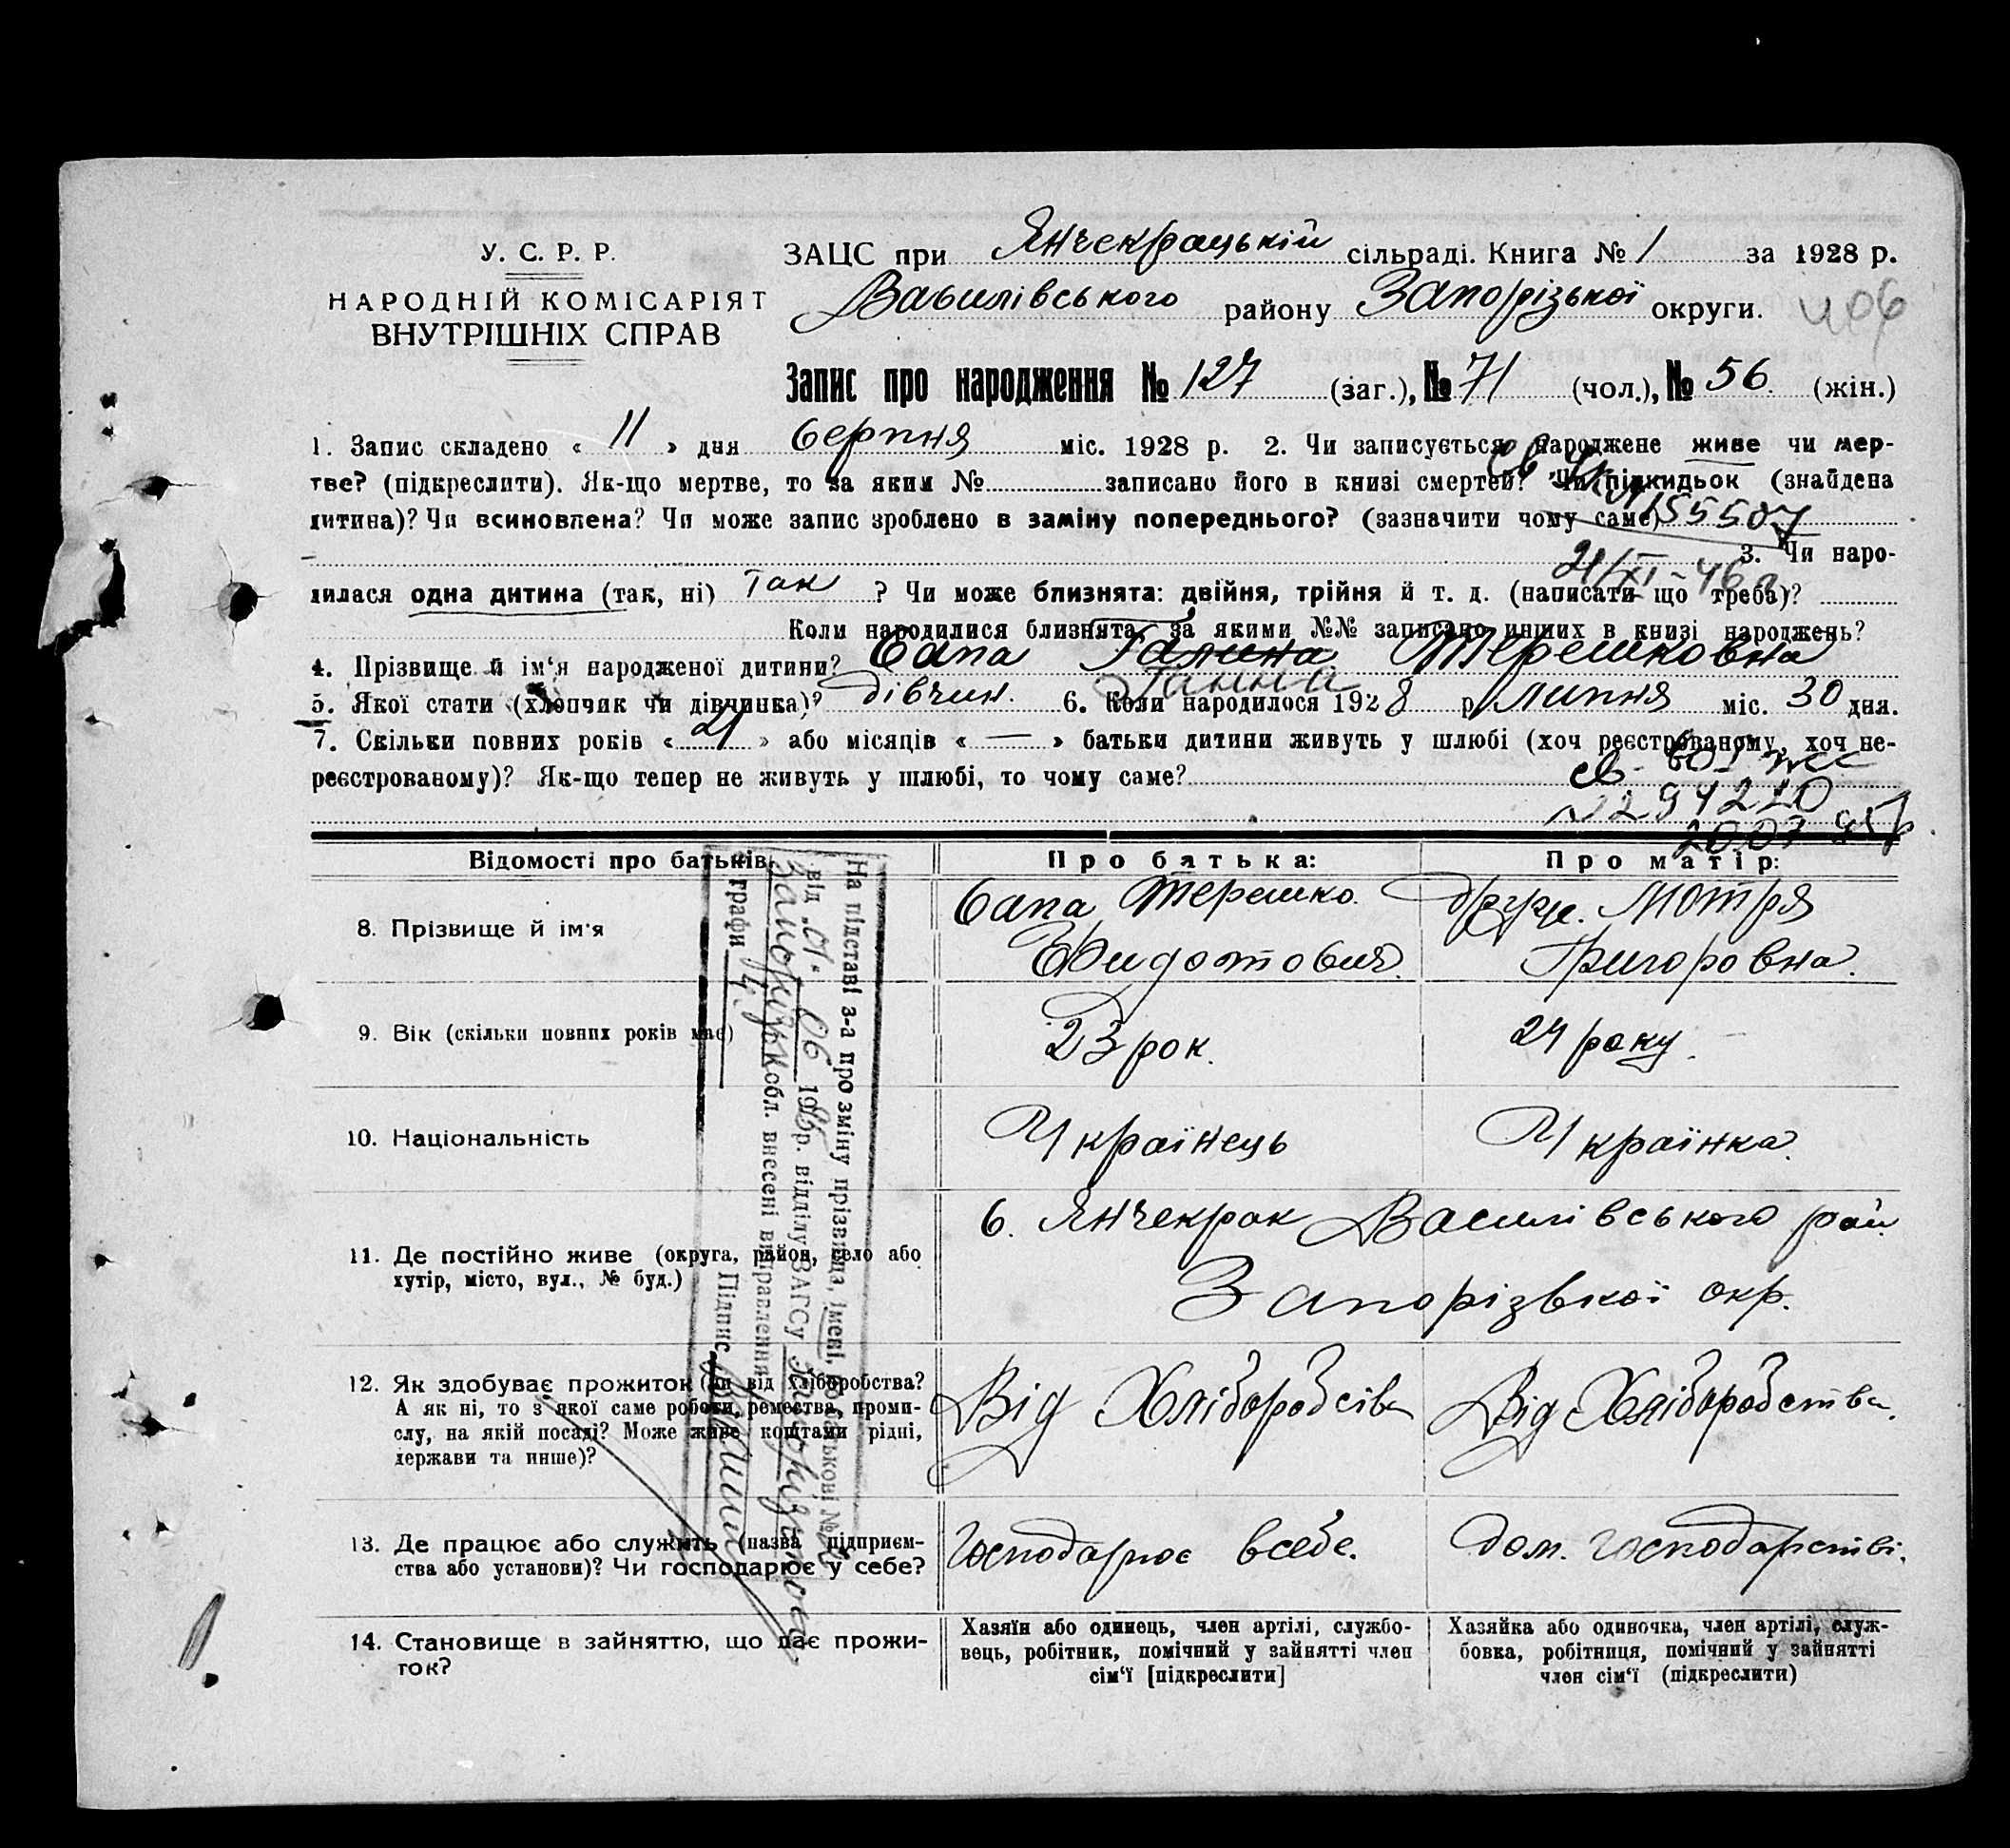 У. С. Р. Р.
НАРОДНІЙ КОМІСАРІЯТ
ВНУТРІШНІХ СПРАВ
ЗАЦС при Янчекрацькій сільраді. Книга № 1 за 1928 р.
Василівського району Запорізької округи.
406
Запис про народження № 127 (заг.), № 71 (чол.), № 56 (жін.)
1. Запис складено « 11 » дня Серпня міс. 1928 р. 2. Чи записується народжене живе чи мер-
тве? (підкреслити). Як-що мертве, то за яким № записано його в книзі смертей? Чи підкидьок (знайдена
дитина)? Чи всиновлена? Чи може запис зроблено в заміну попереднього? (зазначити чому саме)
3. Чи наро-
дилася одна дитина (так, ні) Так ? Чи може близнята: двійня, трійня й т. д. (написати що треба)?
Коли народилися близнята, за якими №№ записано инших в книзі народжень?
4. Прізвище й ім‘я народженої дитини? Сапа Галина Терешковна
Ганна
5. Якої стати (хлопчик чи дівчинка)? дівчин. 6. Коли народилося 1928 р. липня міс. 30 дня.
7. Скільки повних років « » або місяців « — » батьки дитини живуть у шлюбі (хоч реєстрованому, хоч не-
реєстрованому)? Як-що тепер не живуть у шлюбі, то чому саме?
Відомості про батьків: Про батька: Про матір:
8. Прізвище й ім'я Сапа Терешко. Мотря
Григоровна.
9. Вік (скільки повних років має) 23 рок. 24 року.
10. Національність Українець Українка.
11. Де постійно живе (округа, район, село або
хутір, місто, вул., № буд.)
с. Янчекрак Василівського рай.
Запорізької окр.
12. Як здобуває прожиток (чи від хліборобства?
А як ні, то з якої саме роботи, ремества, проми-
слу, на якій посаді? Може живе коштами рідні,
держави та инше)?
Від Хліборобсва Від Хліборобства.
13. Де працює або служить (назва підприєм-
ства або установи)? Чи господарює у себе?
Господарює всебе. Дом. господарстві.
14. Становище в зайняттю, що дає прожи-
ток?
Хазяїн або одинець, член артілі, службо-
вець, робітник, помічний у зайнятті член
сім‘ї [підкреслити]
Хазяйка або одиночка, член артілі, служ-
бовка, робітниця, помічний у зайнятті
член сім‘ї (підкреслити)
На підставі з-а про зміну прізвища, імені, по батькові №
від „01“ 06 19 р. відділу ЗАГСу
обл. внесені виправлення
графи 4. Підпис